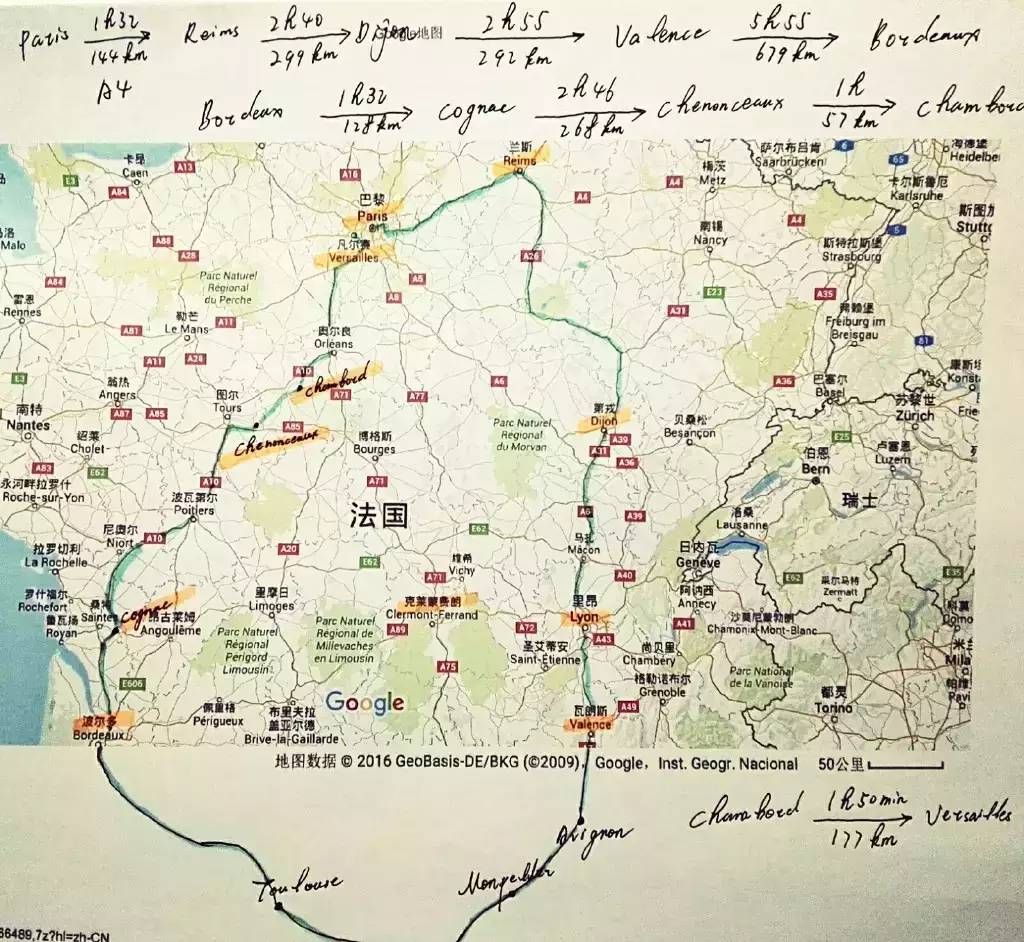 Paris 1h32 144km Reims 2h40 299km Dijon 地图 2h55 292km Valence 5h55 679km Bordeaux
A4
Bordeux 1h32 128km cognac 2h46 268km chenonceaux 1h 57km chambord
兰斯 萨尔布吕肯 6 海德堡
Reims Saarbrücken 65 Heidelbe
卡昂 A13 A16 梅茨
Caen E3 A84 A4 A4 Metz 卡尔斯鲁厄
巴黎 Karlsruhe
Paris 斯图加
马洛 A4 5 Stutt
Malo A88 凡尔赛 南锡 斯特拉斯堡
A28 Versailles A26 Nancy Strasbourg
Parc Naturel A5
A84 Régional E23 A35
雷恩 du Perche A8 弗赖堡
Rennes 勒芒 A11 A31 Freiburg im
A81 Le Mans 奥尔良 Breisgau 81
A11 A28 Orléans
E3 A10 chambord 康斯坦
翁热 图尔 A6 A36 巴塞尔 Konst
Angers Tours A71 A77 Basel 苏黎世
南特 A87 A85 第戎 贝桑松 Zürich Frie
Nantes A85 Parc Naturel Dijon Besançon
绍莱 chenonceaux Régional A39 E25
Cholet 博格斯 du Morvan A31 伯恩 卢塞恩
A83 E62 Bourges A36 Bern Luzern
永河畔拉罗什 A10 A71
Roche-sur-Yon 波瓦第尔 法国 洛桑 瑞士
尼奥尔 Poitiers A6 A39 Lausanne
拉罗切利 Niort A10 E62 马孔 日内瓦
La Rochelle A20 E62 维希 Mâcon Genève
罗什福尔 里摩日 A71 Vichy A40 阿讷西 E62 采尔马特 E35
Rochefort 桑特 Limoges 克莱蒙费朗 里昂 Annecy Zermatt 科莫
鲁瓦扬 Sainte cognac 昂古莱姆 Clermont-Ferrand Lyon 沙莫尼蒙勃朗 Como
Royan Angoulême A89 A72 A43 A41 Chamonix-Mont-Blanc 米
Parc Naturel Parc Naturel 圣艾蒂安 尚贝里 Mila
Régional Régional de Saint-Étienne Chambéry Parc National
Périgord Millevaches A75 格勒诺布尔 de la Vanoise 帕维
Limousin en Limousin Grenoble Pavi
E606 佩里格 布里夫拉 Google 都灵
波尔多 Périgueux 盖亚尔德 瓦朗斯 A49 Torino
Bordeaux Brive-la-Gaillarde Valence
地图数据 © 2016 GeoBasis-DE/BKG (©2009), Google, Inst. Geogr. Nacional 50公里
Chambord 1h50min 177km Versailles
Avignon
Toulouse Mongellier
66489,7z?hl=zh-CN